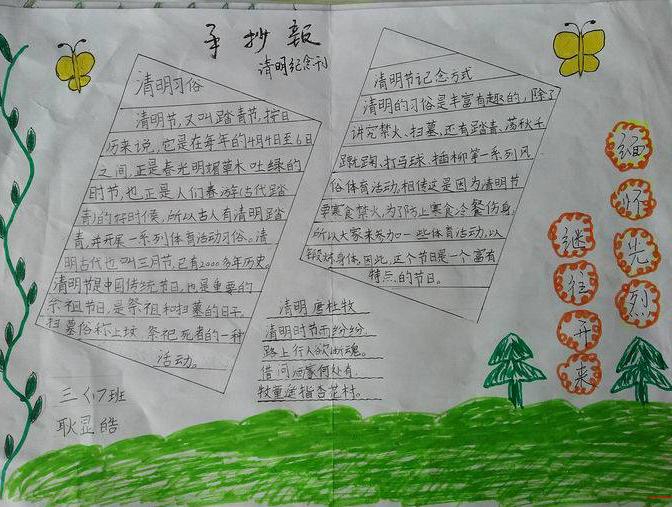 手抄报
清明纪念刊
清明习俗
清明节,又叫踏青节,按日
历来说,它是在每年的4月4日至6日
之间,正是春光明媚草木吐绿的
时节,也正是人们春游(古代踏
青)的好时候,所以古人有清明踏
青,并开展一系列体育活动习俗。清
明古代也叫三月节,已有2000多年历史。
清明节是中国传统节日,也是重要的
祭祖节日,是祭祖和扫墓的日子。
扫墓俗称上坟,祭祀死者的一种
活动。
三(7)班
耿显皓
清明节记念方式
清明的习俗是丰富有趣的,除了
讲究禁火、扫墓,还有踏青、荡秋千
蹴踘、打马球、插柳等一系列风
俗体育活动,相传这是因为清明节
要寒食禁火,为了防止寒食冷餐伤身,
所以大家来参加一些体育活动,以
锻炼身体,因此,这个节日是一个富有
特点的节日。
清明 唐杜牧
清明时节雨纷纷,
路上行人欲断魂。
借问酒家何处有,
牧童遥指杏花村。
缅怀先烈
继往开来